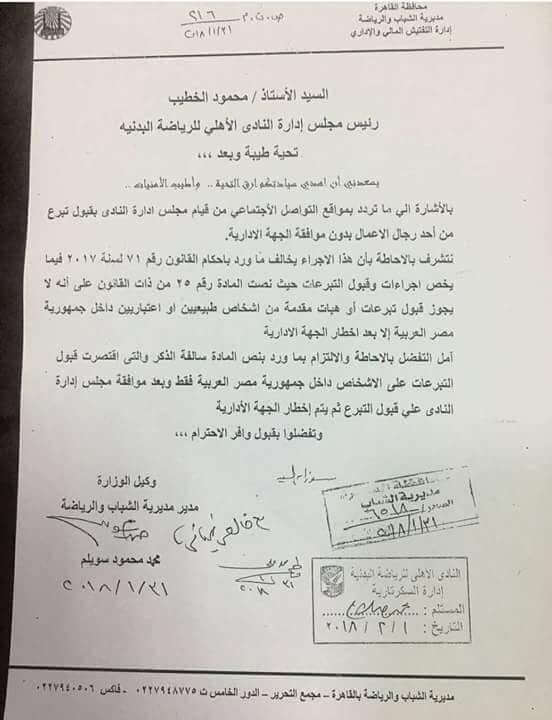 محافظة القاهرة
مديرية الشباب والرياضة
إدارة التفتيش المالي والإداري
ص.ن.م ٢١٦
٢٠١٨/١/٣١
السيد الأستاذ / محمود الخطيب
رئيس مجلس إدارة النادى الأهلي للرياضة البدنيه
تحية طيبة وبعد ,,,
يسعدني أن اهدي سيادتكم ارق التحية .. وأطيب الأمنيات ..
بالأشارة الي ما تردد بمواقع التواصل الأجتماعي من قيام مجلس ادارة النادى بقبول تبرع
من أحد رجال الاعمال بدون موافقة الجهة الادارية.
نتشرف بالاحاطة بأن هذا الاجراء يخالف ما ورد باحكام القانون رقم ٧١ لسنة ٢٠١٧ فيما
يخص اجراءات وقبول التبرعات حيث نصت المادة رقم ٢٥ من ذات القانون على أنه لا
يجوز قبول تبرعات أو هبات مقدمة من اشخاص طبيعيين او اعتباريين داخل جمهورية
مصر العربية إلا بعد اخطار الجهة الادارية
آمل التفضل بالاحاطة والالتزام بما ورد بنص المادة سالفة الذكر والتى اقتصرت قبول
التبرعات على الاشخاص داخل جمهورية مصر العربية فقط وبعد موافقة مجلس إدارة
النادى علي قبول التبرع ثم يتم إخطار الجهة الأدارية
وتفضلوا بقبول وافر الاحترام ,,,
وكيل الوزارة
مدير مديرية الشباب والرياضة
محمد محمود سويلم
٢٠١٨/١/٣١
مديرية الشباب
٢٠١٨/١/٣١
النادى الاهلى للرياضة البدنية
إدارة السكرتارية
المستلم :
التاريخ : ٢٠١٨/٢/١
مديرية الشباب والرياضة بالقاهرة – مجمع التحرير – الدور الخامس ت ٠٢٢٧٩٤٨٧٧٥ - فاكس ٠٢٢٧٩٤٠٥٠٦